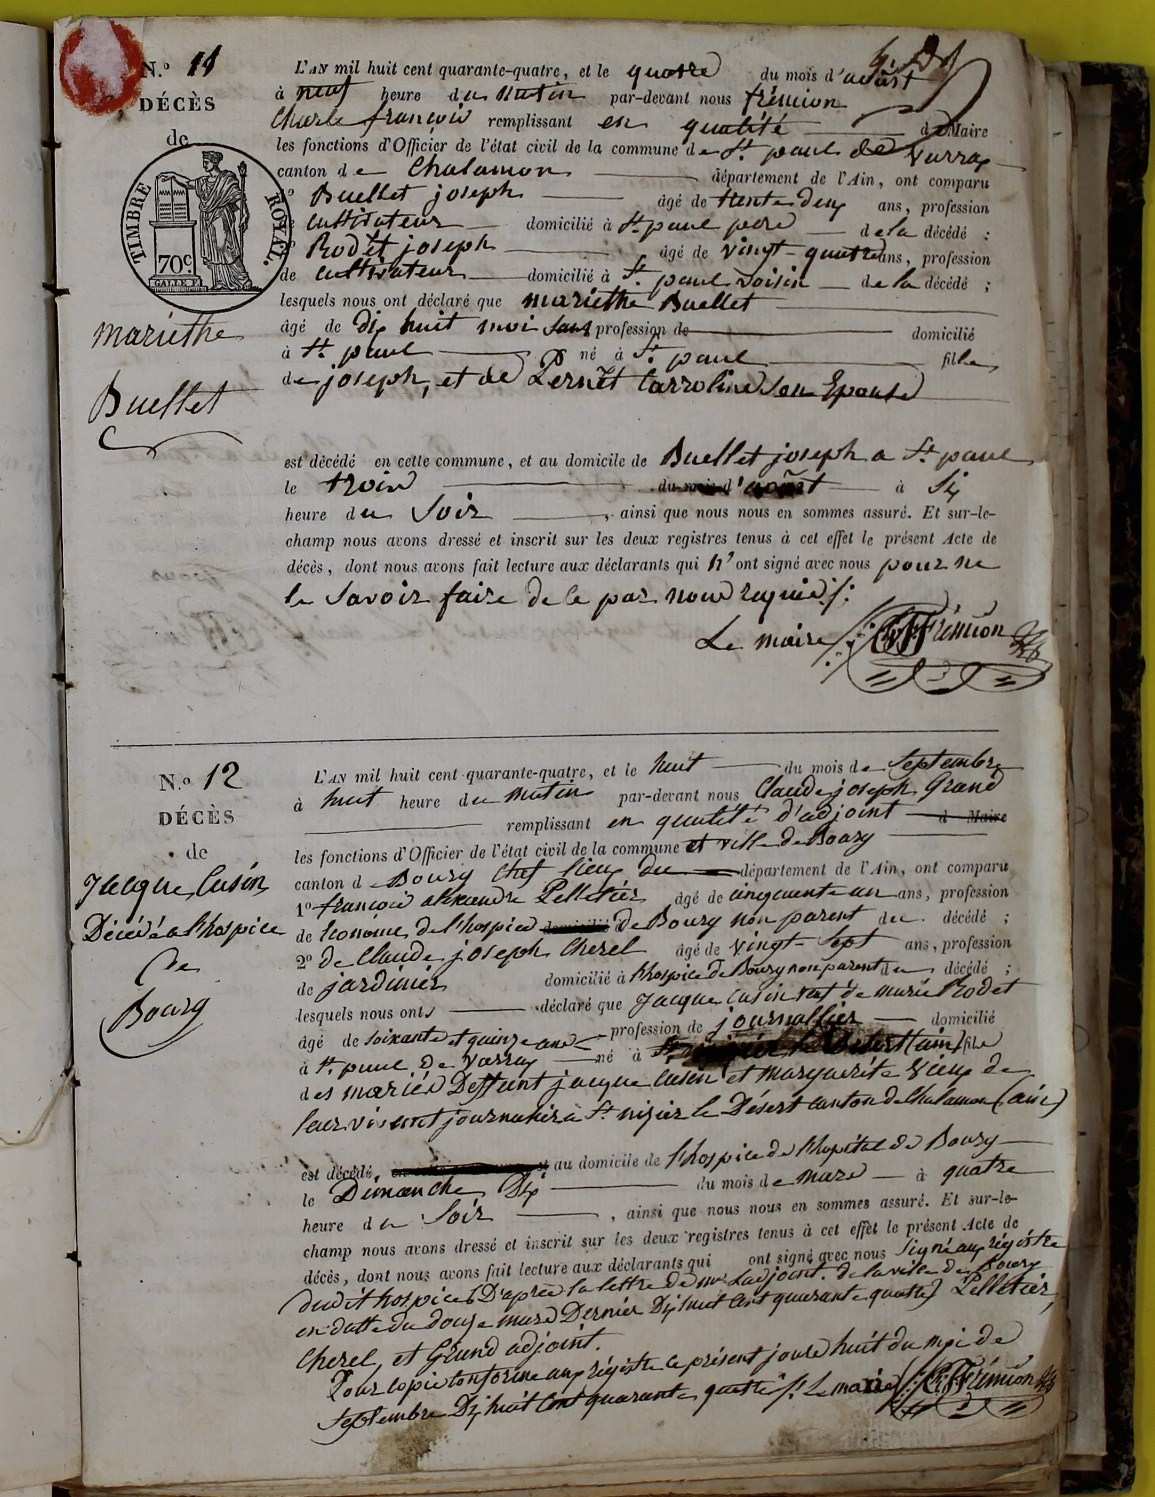 N.o 11
DÉCÈS
de
TIMBRE ROYAL.
70c
mariethe
Buellet
L'AN mil huit cent quarante-quatre, et le quatre du mois d'août
à neuf heure du matin par-devant nous frémion
Charle françois remplissant en qualité de Maire
les fonctions d'Officier de l'état civil de la commune de St paul de Varray
canton de Chalamon département de l'Ain, ont comparu
1o Buellet joseph âgé de trente deux ans, profession
cultivateur domicilié à St paul pere de la décédé ;
Rodet joseph âgé de vingt-quatre ans, profession
de cultivateur domicilié à St paul voisin de la décédé ;
lesquels nous ont déclaré que mariethe Buellet
âgé de dix huit moi sans profession de domicilié
à St paul né à St paul fille
de joseph, et de Pernet Carroline son Epouse
est décédé en cette commune, et au domicile de Buellet joseph a St paul
le trois du mois d'août à Six
heure du Soir, ainsi que nous nous en sommes assuré. Et sur-le-
champ nous avons dressé et inscrit sur les deux registres tenus à cet effet le présent Acte de
décès, dont nous avons fait lecture aux déclarants qui n'ont signé avec nous pour ne
le Savoir faire de ce par nous requis
Le maire Frémion
N.o 12
DÉCÈS
de
Jacque Cusin
Décédé a l'hospice
De
Bourg
L'AN mil huit cent quarante-quatre, et le huit du mois de Septembre
à huit heure du matin par-devant nous Claude joseph Grand
remplissant en qualité d'adjoint d Maire
les fonctions d'Officier de l'état civil de la commune et ville de Bourg
canton de Bourg chef lieux du département de l'Ain, ont comparu
1o françois alexandre Pelletier âgé de cinquante un ans, profession
de Econome de l'hospice domicilié de Bourg non parent du décédé ;
2o de Claude joseph Cherel âgé de vingt-Sept ans, profession
de jardinier domicilié à l'hospice de Bourg non parent du décédé ;
lesquels nous ont déclaré que jacque Cusin de marie Rodet
âgé de soixante et quinze ans profession de journallier domicilié
à St paul de Varray né à St Désert (ain) fils
des mariés Deffunt jacque Cusin et marguerite Vieux de
leur vivant journalier a St nizier le Désert canton de Chalamon (ain)
est décédé, au domicile de l'hospice de l'hopital de Bourg
le Dimanche Dix du mois de mars à quatre
heure du Soir, ainsi que nous nous en sommes assuré. Et sur-le-
champ nous avons dressé et inscrit sur les deux registres tenus à cet effet le présent Acte de
décès, dont nous avons fait lecture aux déclarants qui ont signé avec nous Signé aux régistre
dudit hospice (D'après la lettre de mr Ladjoint de la ville de Bourg
en datte du douze mars Dernier Dix huit Cent quarante quatre) Pelletier,
Cherel, et Grand adjoint.
Pour copie conforme aux régistre ce présent jours huit du moi de
Septembre Dix huit Cent quarante quatre Le maire Frémion